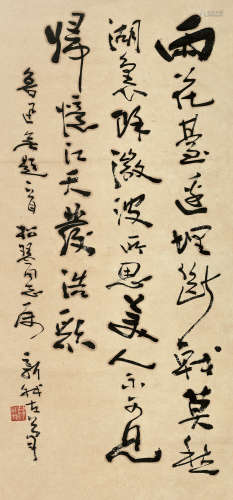 雨花臺邊埋斷戟莫愁
湖裏餘微波所思美人不可見
歸憶江天發浩歌
魯迅無題二首 松同志屬